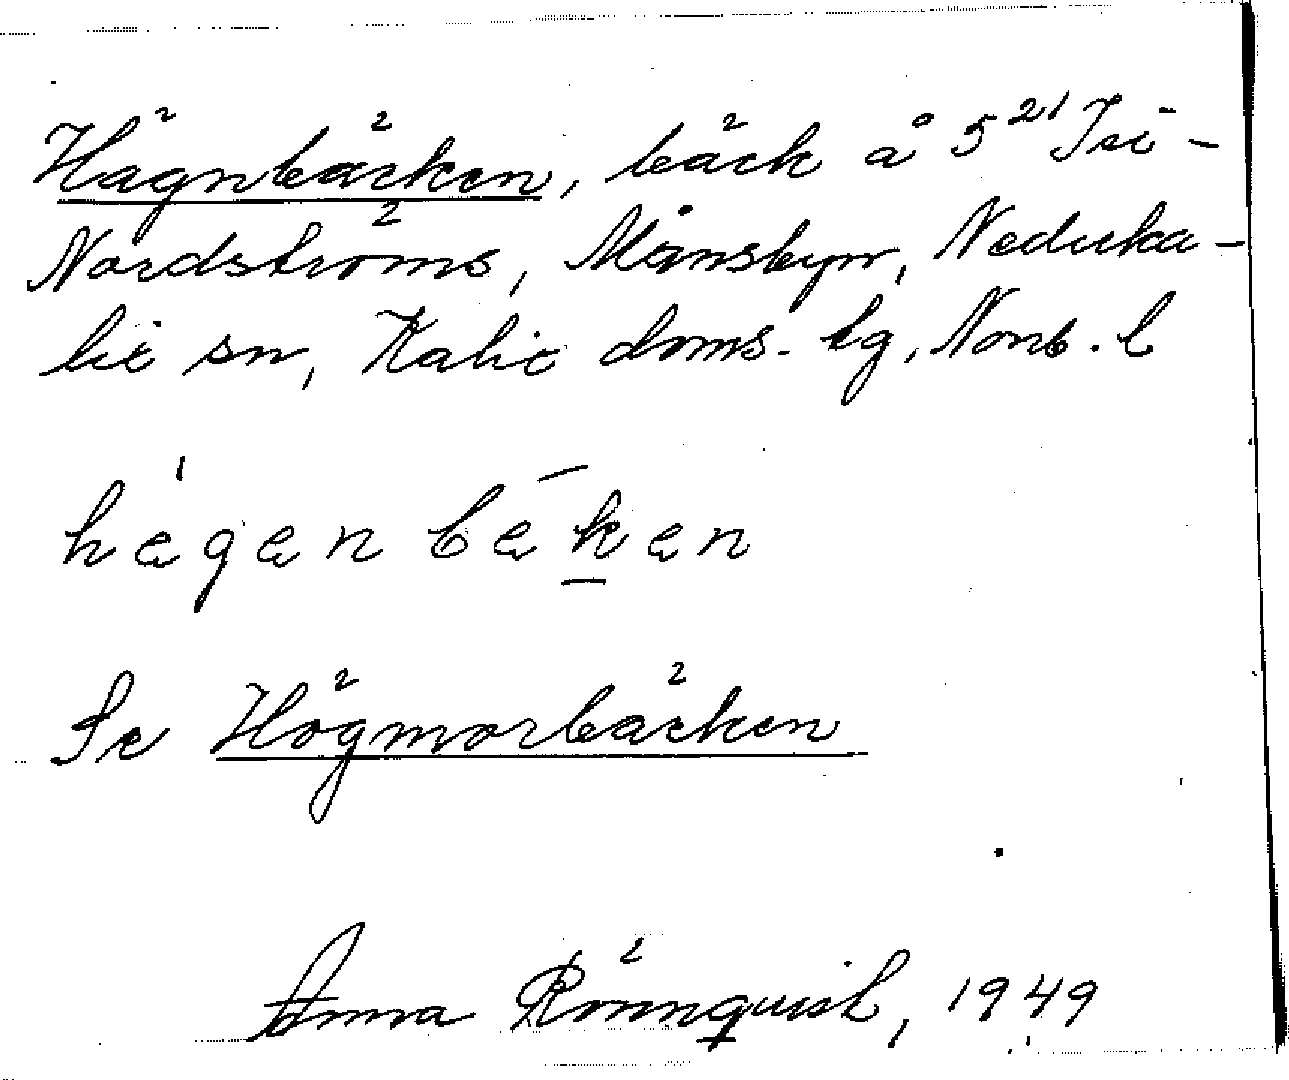 Hägnbäcken, bäck å 5²¹ Isi-
Nordströms, Månsbyn, Nederka-
lix sn, Kalix doms. lg, Norrb. l
hägän bäkän
Se Högmorbäcken
Anna Rönnquist, 1949